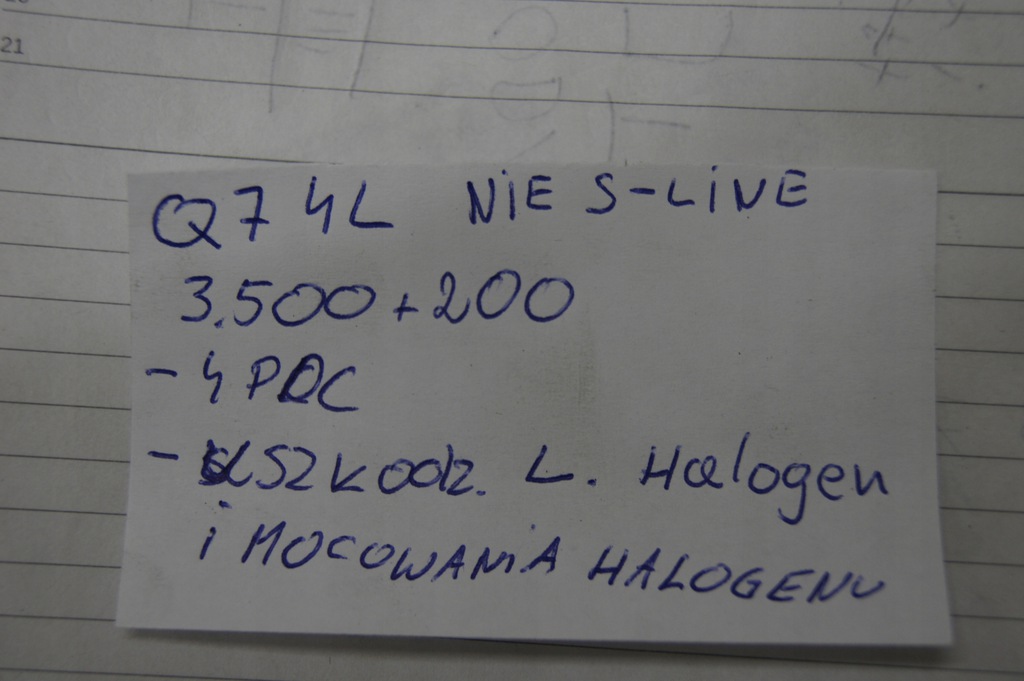 21
Q7 4L NIE S-LINE
3.500 + 200
- 4 PDC
- USZKODZ. L. Halogen
i MOCOWANIA HALOGENU